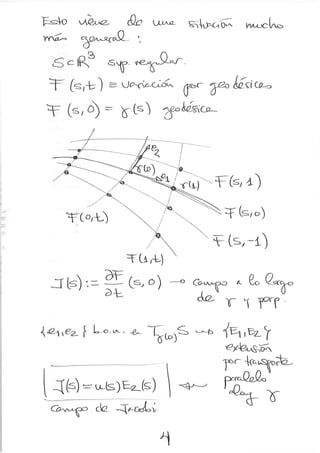 Esto viene de una situación mucho
más general :
S ⊂ R³ sup. regular.
F (s,t) ≡ variación por geodésicas
F (s,0) = γ(s) geodésica
e2
γ(0)
e1
γ(1)
F(s,1)
F(0,t)
F(s,0)
F(s,-1)
F(1,t)
J(s) := ∂F/∂t (s,0) → campo a lo largo
de γ y perp.
{e1,e2} b.o.n. de Tγ(0)S → {E1,E2}
extensión
por transporte
paralelo
along γ
J(s) = u(s)E2(s)
campo de Jacobi
4